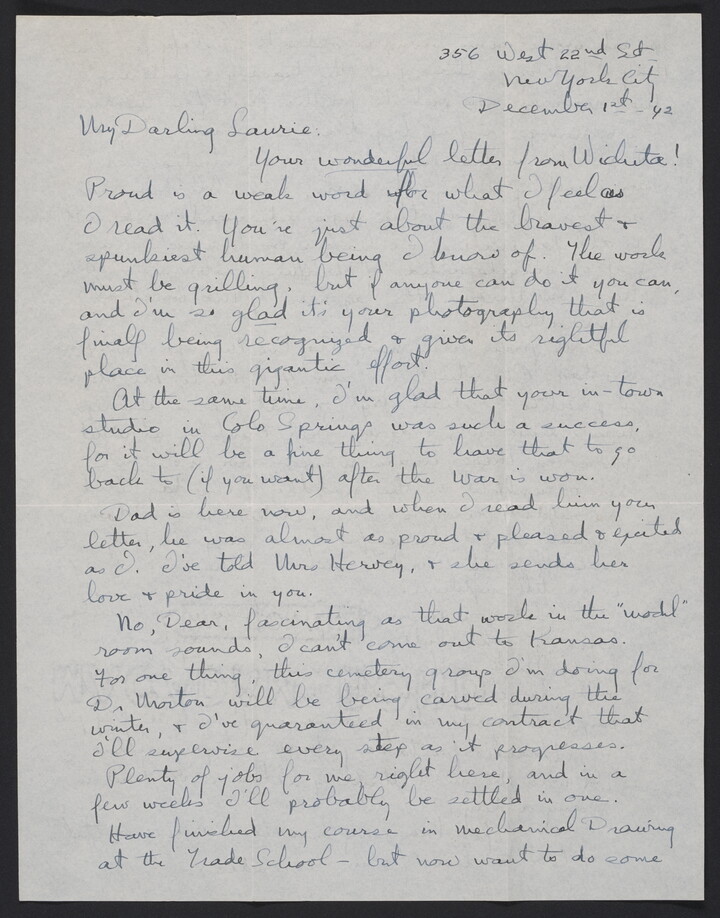 356 West 22nd St
New York City
December 1st - 42
My Darling Laurie:
Your wonderful letter from Wichita!
Proud is a weak word for what I feel as
I read it. You're just about the bravest +
spunkiest human being I know of. The work
must be grilling, but if anyone can do it you can,
and I'm so glad it's your photography that is
finally being recognized & given its rightful
place in this gigantic effort.
At the same time, I'm glad that your in-town
studio in Colo Springs was such a success,
for it will be a fine thing to have that to go
back to (if you want) after the war is won.
Dad is here now, and when I read him your
letter, he was almost as proud + pleased & excited
as I. I've told Mrs Hervey, + she sends her
love + pride in you.
No, Dear, fascinating as that work in the "model"
room sounds, I can't come out to Kansas.
For one thing, this cemetery group I'm doing for
Dr Morton will be being carved during the
winter, + I've guaranteed in my contract that
I'll supervise every step as it progresses.
Plenty of jobs for me, right here, and in a
few weeks I'll probably be settled in one.
Have finished my course in mechanical Drawing
at the Trade School - but now want to do some